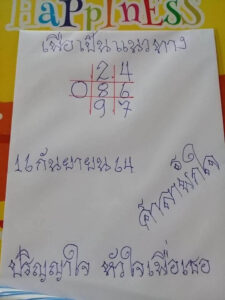 HAPPINESS
เพื่อเป็นแนวทาง
24
086
97
16 กันยายน 64
ปริญญาใจ หัวใจเพื่อเธอ